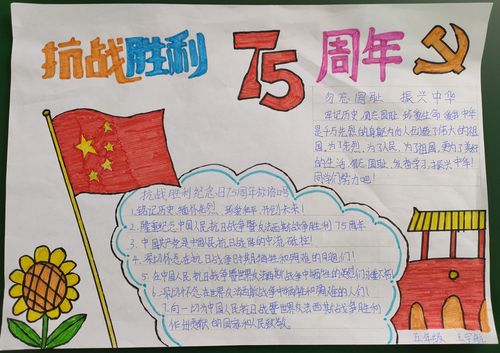 抗战胜利75周年
勿忘国耻 振兴中华
牢记历史,勿忘国耻,珍爱生命,爱我中华
是千万先烈的身躯为
的祖
国,为了先烈,为了人民,为了祖国,更为了美好
的生活,勿忘国耻,发奋学习,振兴中华!
同学们努力吧!
抗战胜利纪念日75周年
1.铭记历史、缅怀先烈、珍爱和平、开创未来!
2.隆重纪念中国人民抗日战争暨世界反法西斯战争胜利75周年
3.中国共产党是中国人民抗日战争的中流砥柱!
4.深切怀念在抗日战争时期牺牲和遇难的同胞们!
5.在中国人民抗日战争暨世界反法西斯战争中牺牲的英烈们永垂不朽
6.深切怀念在世界反法西斯战争中牺牲和遇难的人们!
7.向一切为中国人民抗日战争暨世界反法西斯战争胜利
作出贡献的国家和人民致敬。
五年级 王